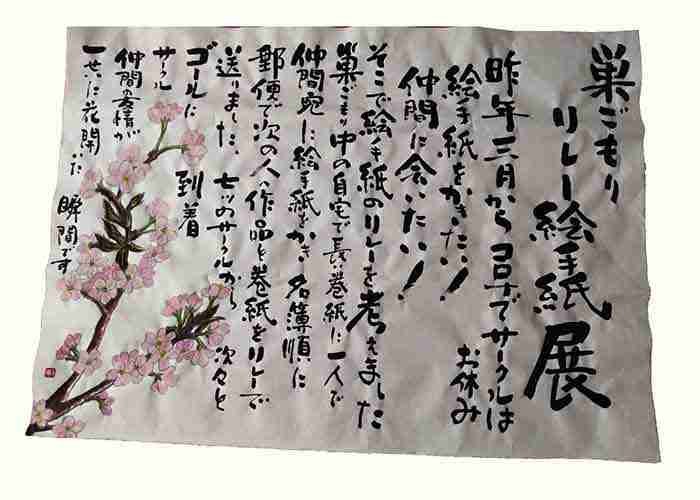 巣ごもり
リレー絵手紙展
昨年三月からコロナでサークルは
お休み
絵手紙をかきたい！
仲間に会いたい！
そこで絵手紙のリレーを考えました
巣ごもり中の自宅で長い巻紙に一人で
仲間宛に絵手紙をかき名簿順に
郵便で次の人へ作品と巻紙をリレーで
送りました、七ツのサークルから次々と
ゴールに到着
サークル
仲間の友情が
一せいに花開いた瞬間です